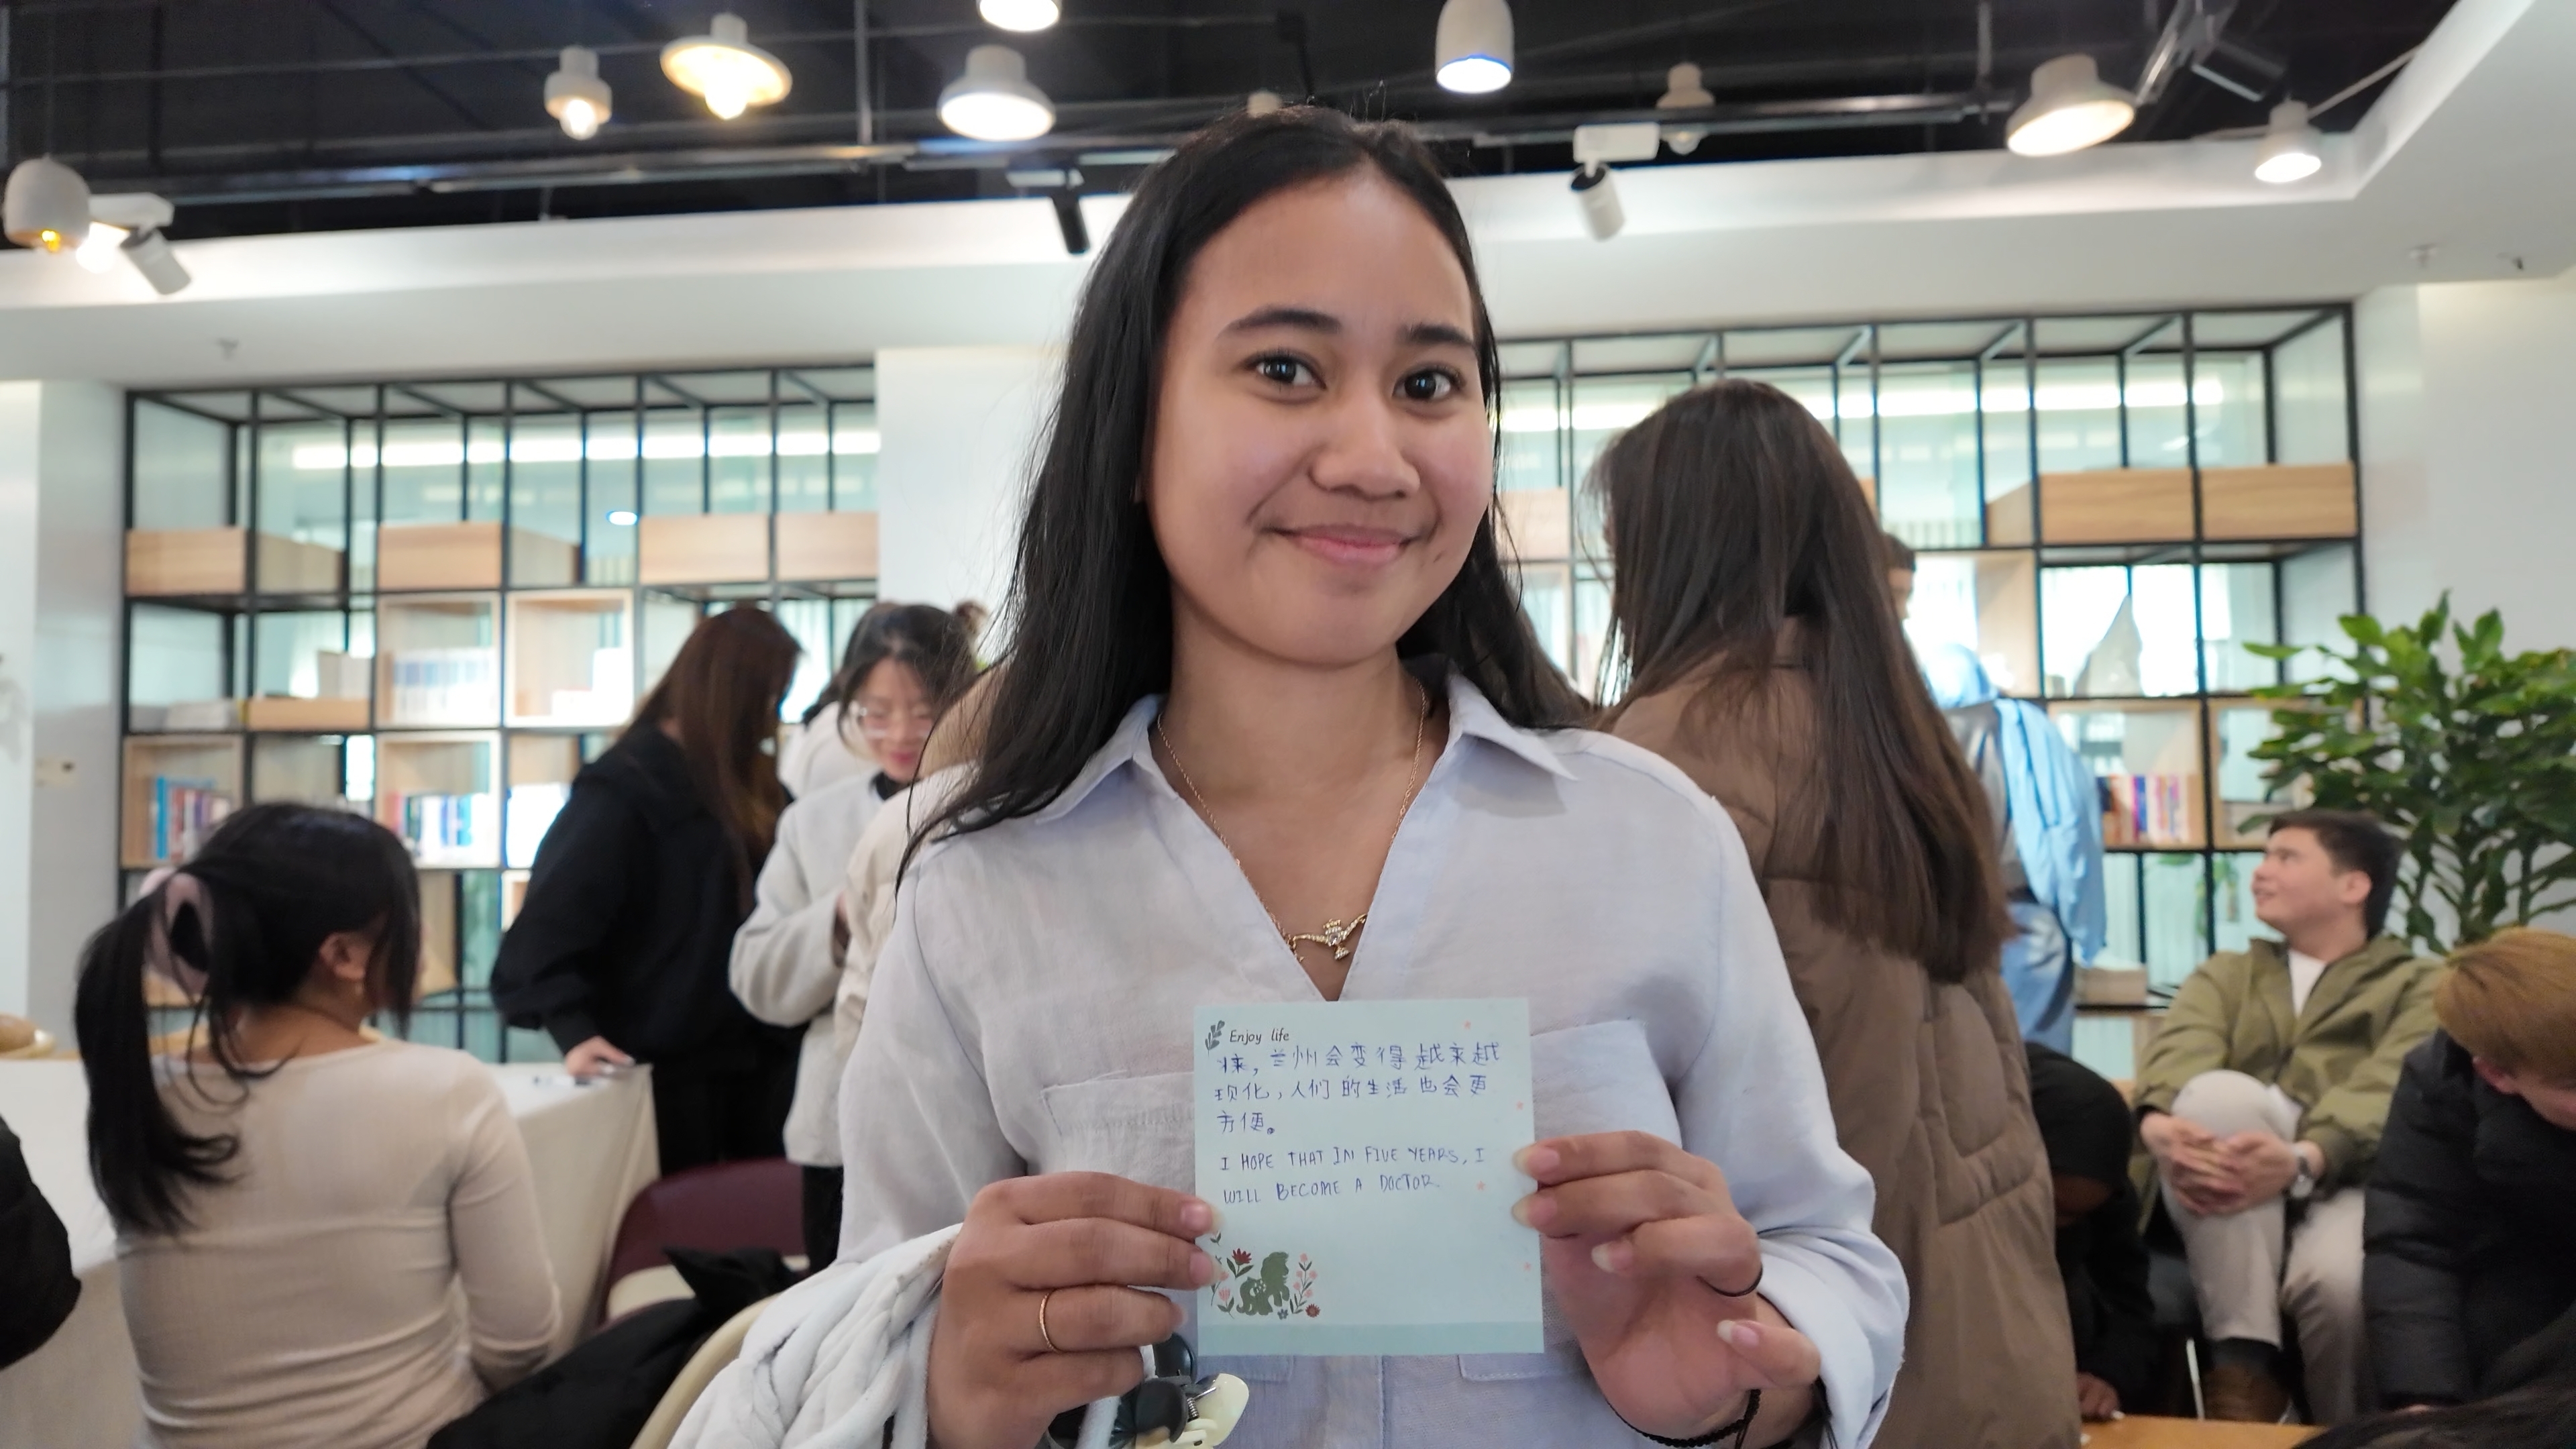 Enjoy life
将来，兰州会变得越来越
现化，人们的生活也会更
方便。
I HOPE THAT IN FIVE YEARS, I
WILL BECOME A DOCTOR